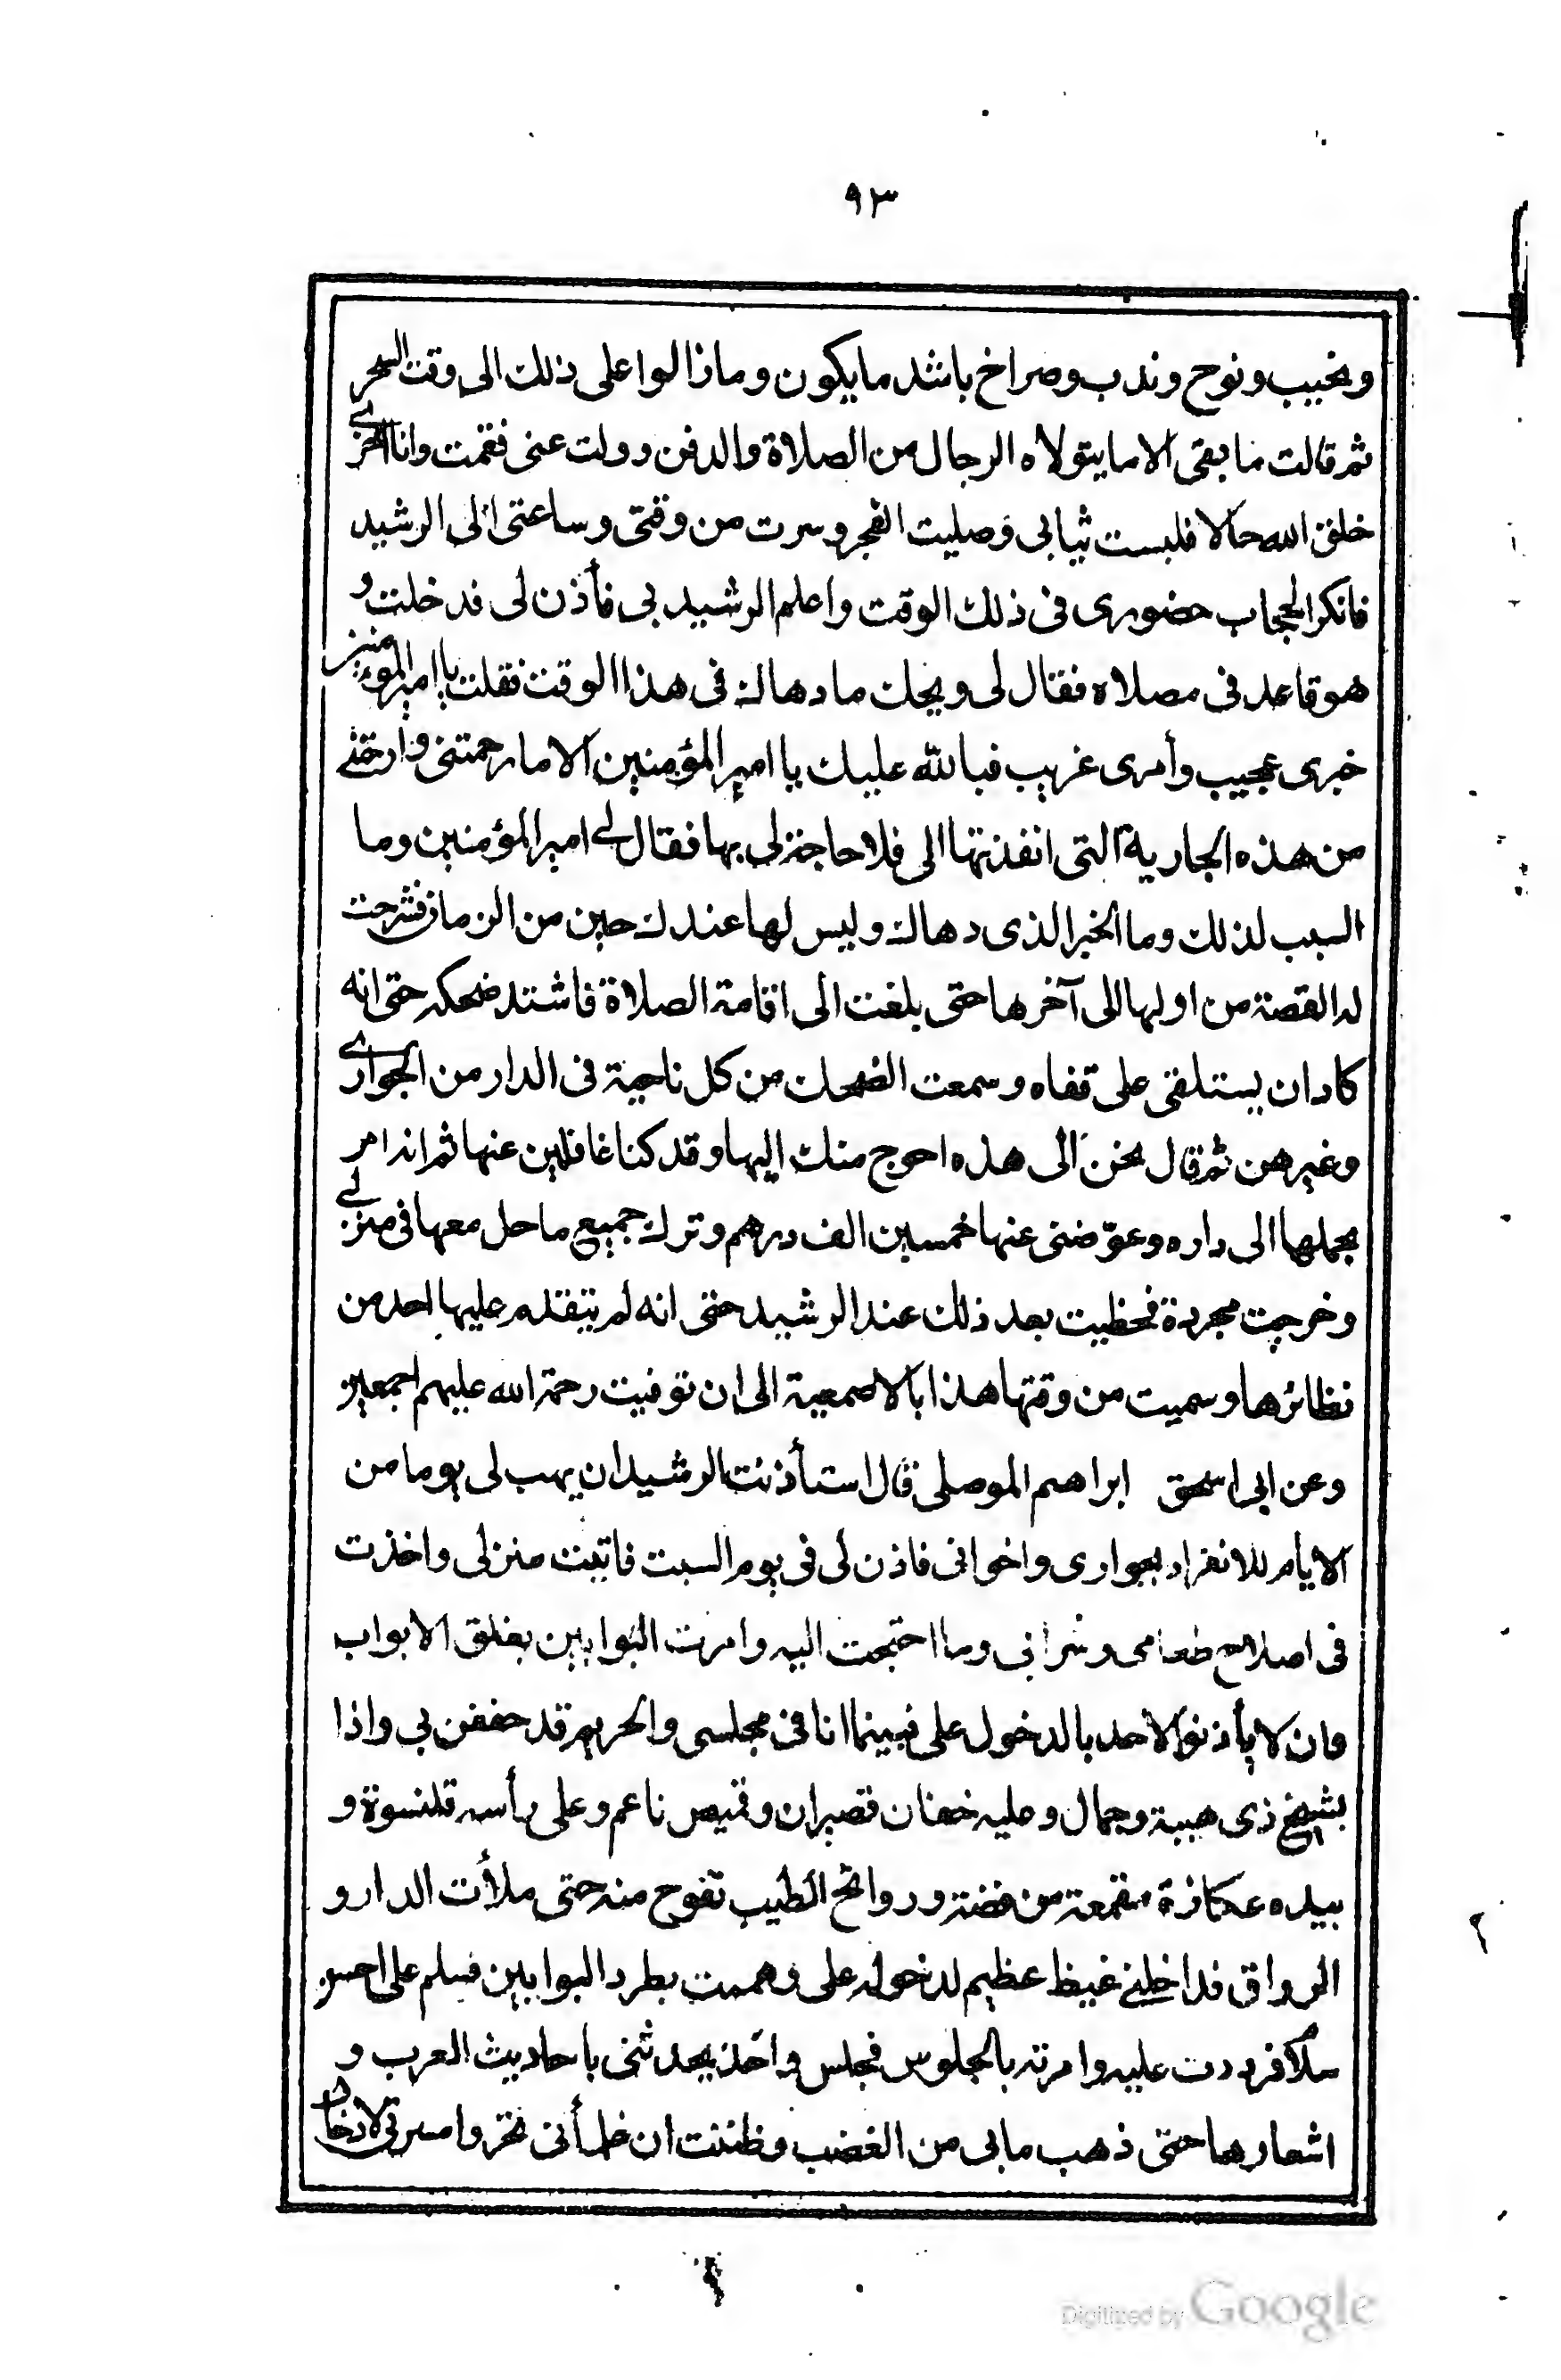 ٩٣
ونحيب ونوح وندب وصراخ باشد مايكون ومازالوا على ذلك الى وقت السحر
ثم قالت مابقى الا مايتولاه الرجال من الصلاة والدفن وولت عنى فقمت وانا اخزى
خلق الله حالا فلبست ثيابى وصليت الفجر وسرت من وقتى وساعتى الى الرشيد
فانكر الحجاب حضورى فى ذلك الوقت واعلم الرشيد بى فأذن لى فدخلت و
هو قاعد فى مصلاه فقال لى ويحك مادهاك فى هذا الوقت فقلت يا امير المؤمنين
خبرى عجيب وأمرى غريب فبالله عليك يا امير المؤمنين الا مارحمتنى وارحتنى
من هذه الجارية التى انفذتها الى فلا حاجة لى بها فقال لى امير المؤمنين وما
السبب لذلك وما الخبر الذى دهاك وليس لها عندك حين من الزمان فشرحت
له القصة من اولها الى آخرها حتى بلغت الى اقامة الصلاة فاشتد ضحكه حتى انه
كاد ان يستلقى على قفاه وسمعت الضحك من كل ناحية فى الدار من الجوارى
وغيرهن ثم قال نحن الى هذه احوج منك اليها وقد كنا غافلين عنها ثم انه امر
بحملها الى داره وعوّضنى عنها خمسين الف درهم وترك جميع ماحل معها فى منزلى
وخرجت مجردة فحظيت بعد ذلك عند الرشيد حتى انه لم يتقدم عليها احد من
نظائرها وسميت من وقتها هذا بالاصمعية الى ان توفيت رحمة الله عليهم اجمعين
وعن ابى اسحق ابراهيم الموصلى قال استأذنت الرشيد ان يهب لى يوما من
الايام للانفراد بجوارى واخوانى فاذن لى فى يوم السبت فاتيت منزلى واخذت
فى اصلاح طعامى وشرابى وما احتجت اليه وامرت البوابين بغلق الابواب
وان لا يأذنوا لاحد بالدخول على فبينما انا فى مجلسى والحريم قد حففن بى واذا
بشيخ ذى هيبة وجمال وعليه خفان قصيران وقميص ناعم وعلى رأسه قلنسوة و
بيده عكازة مقمعة من فضة وروائح الطيب تفوح منه حتى ملأت الدار و
الرواق فداخلنى غيظ عظيم لدخوله على وهممت بطرد البوابين فسلم على احسن
سلام فرددت عليه وامرته بالجلوس فجلس واخذ يحدثنى باحاديث العرب و
اشعارها حتى ذهب مابى من الغضب وظننت ان غلمانى تحروا مسرتى لادخال
Digitized by Google